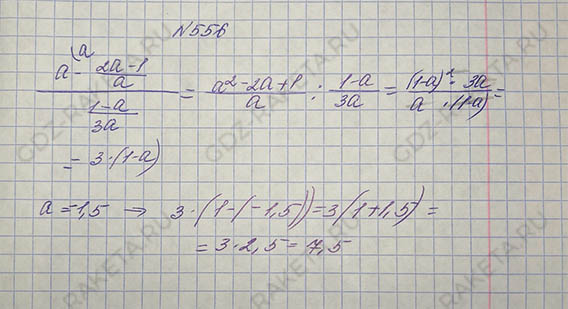 N556
(a - (2a-1)/a) / ((1-a)/3a) = (a²-2a+1)/a : (1-a)/3a = ((1-a)² · 3a)/(a · (1-a)) =
= 3·(1-a)
a = -1,5 → 3·(1-(-1,5)) = 3(1+1,5) =
= 3·2,5 = 7,5
GDZ-RAKETA.RU